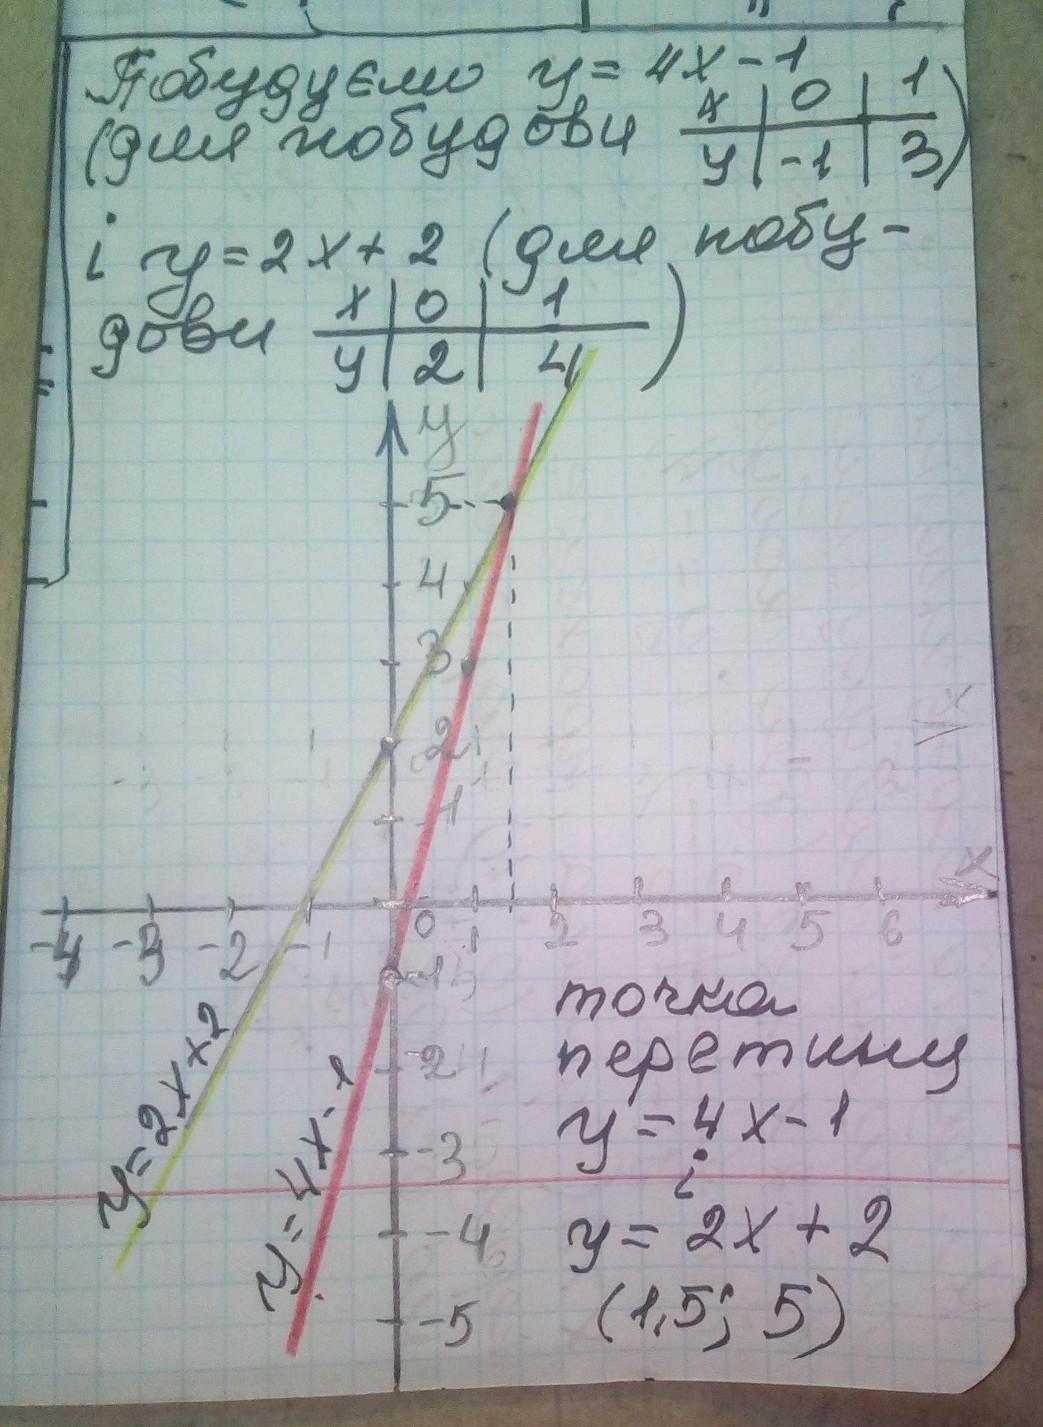 Побудуємо y = 4x - 1
(для побудови x | 0 | 1
y | -1 | 3)
і y = 2x + 2 (для побу-
дови x | 0 | 1
y | 2 | 4)
y
5
4
3
2
1
x
-4 -3 -2 -1 0 1 2 3 4 5 6
-1
-2
-3
-4
-5
y = 2x + 2
y = 4x - 1
точка
перетину
y = 4x - 1
і
y = 2x + 2
(1,5; 5)